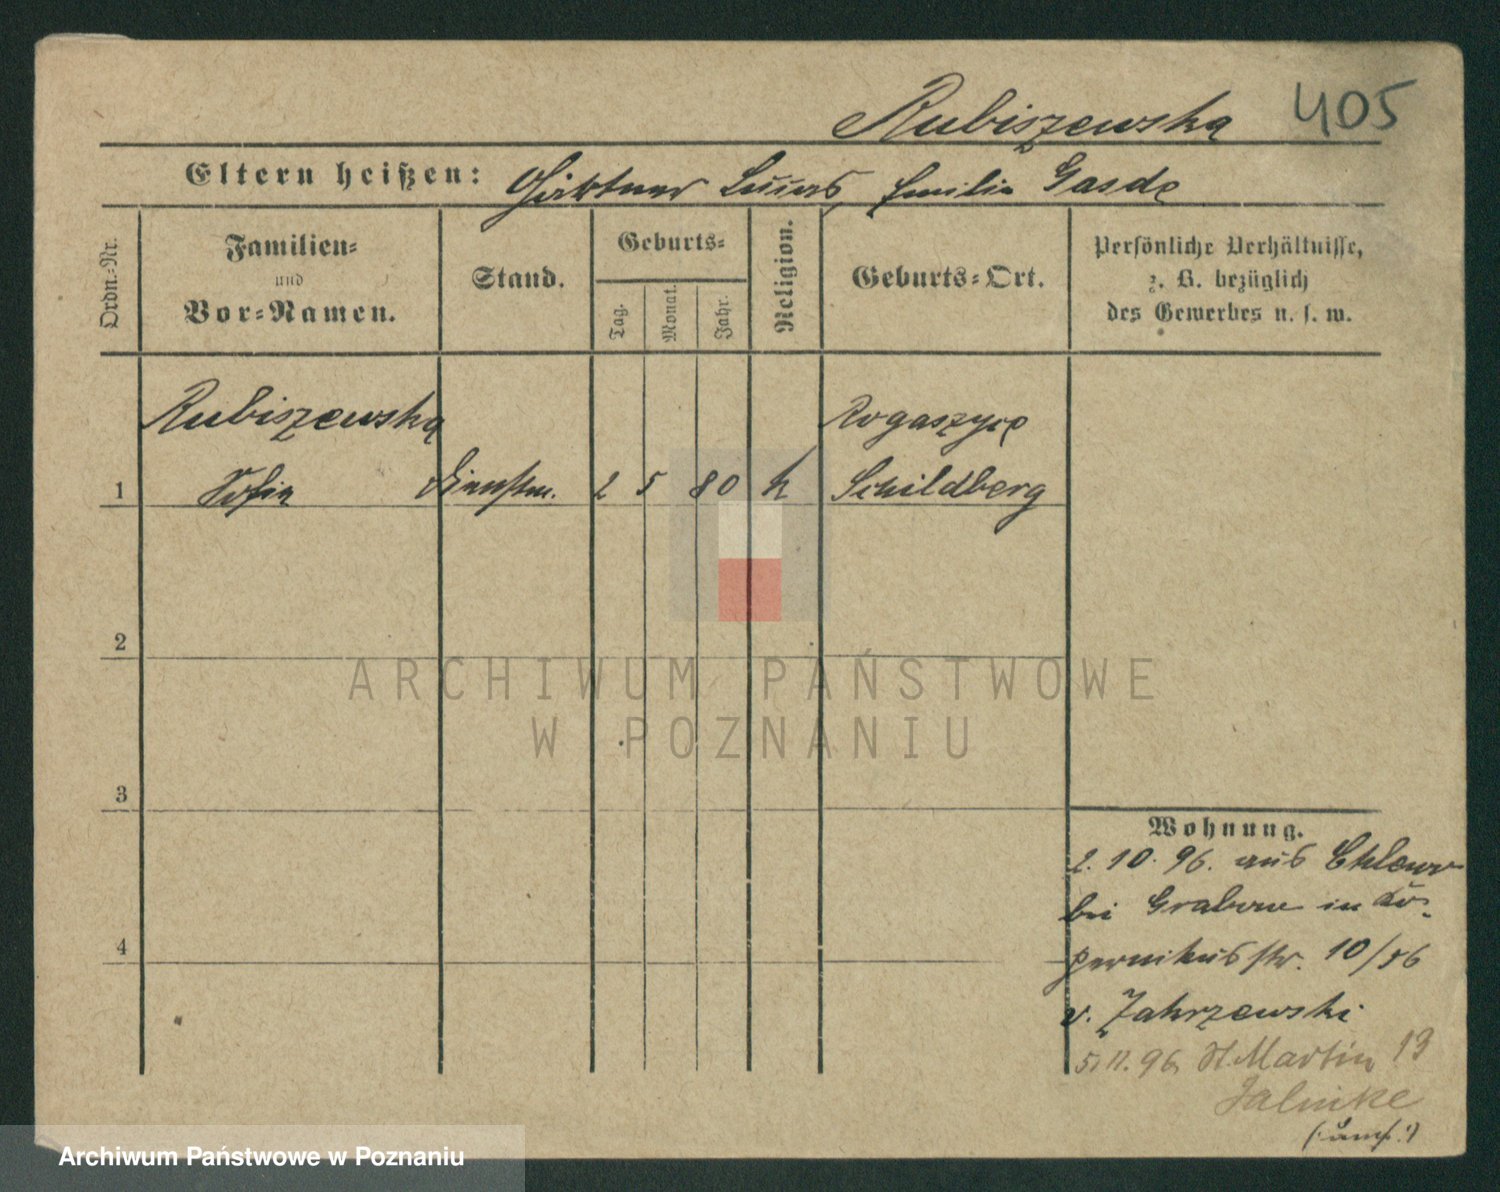 Rubiszewska 405
Eltern heißen: Gärtner Lucas, Emilia Gasde
Ordn.-Nr.
Familien-
und
Vor-Namen.
Stand.
Geburts-
Tag.
Monat.
Jahr.
Religion.
Geburts-Ort.
Persönliche Verhältnisse,
z. B. bezüglich
des Gewerbes u. s. w.
Rubiszewska Rogaszyce
1 Sofia Dienstm. 2 5 80 k Schildberg
2
ARCHIWUM PAŃSTWOWE
W POZNANIU
3
Wohnung.
2. 10. 96. aus
bei Grabow in Ko-
4
pernikusstr. 10/56
v. Zakrzewski
5/11. 96 St. Martin 13
Jalinke
Archiwum Państwowe w Poznaniu